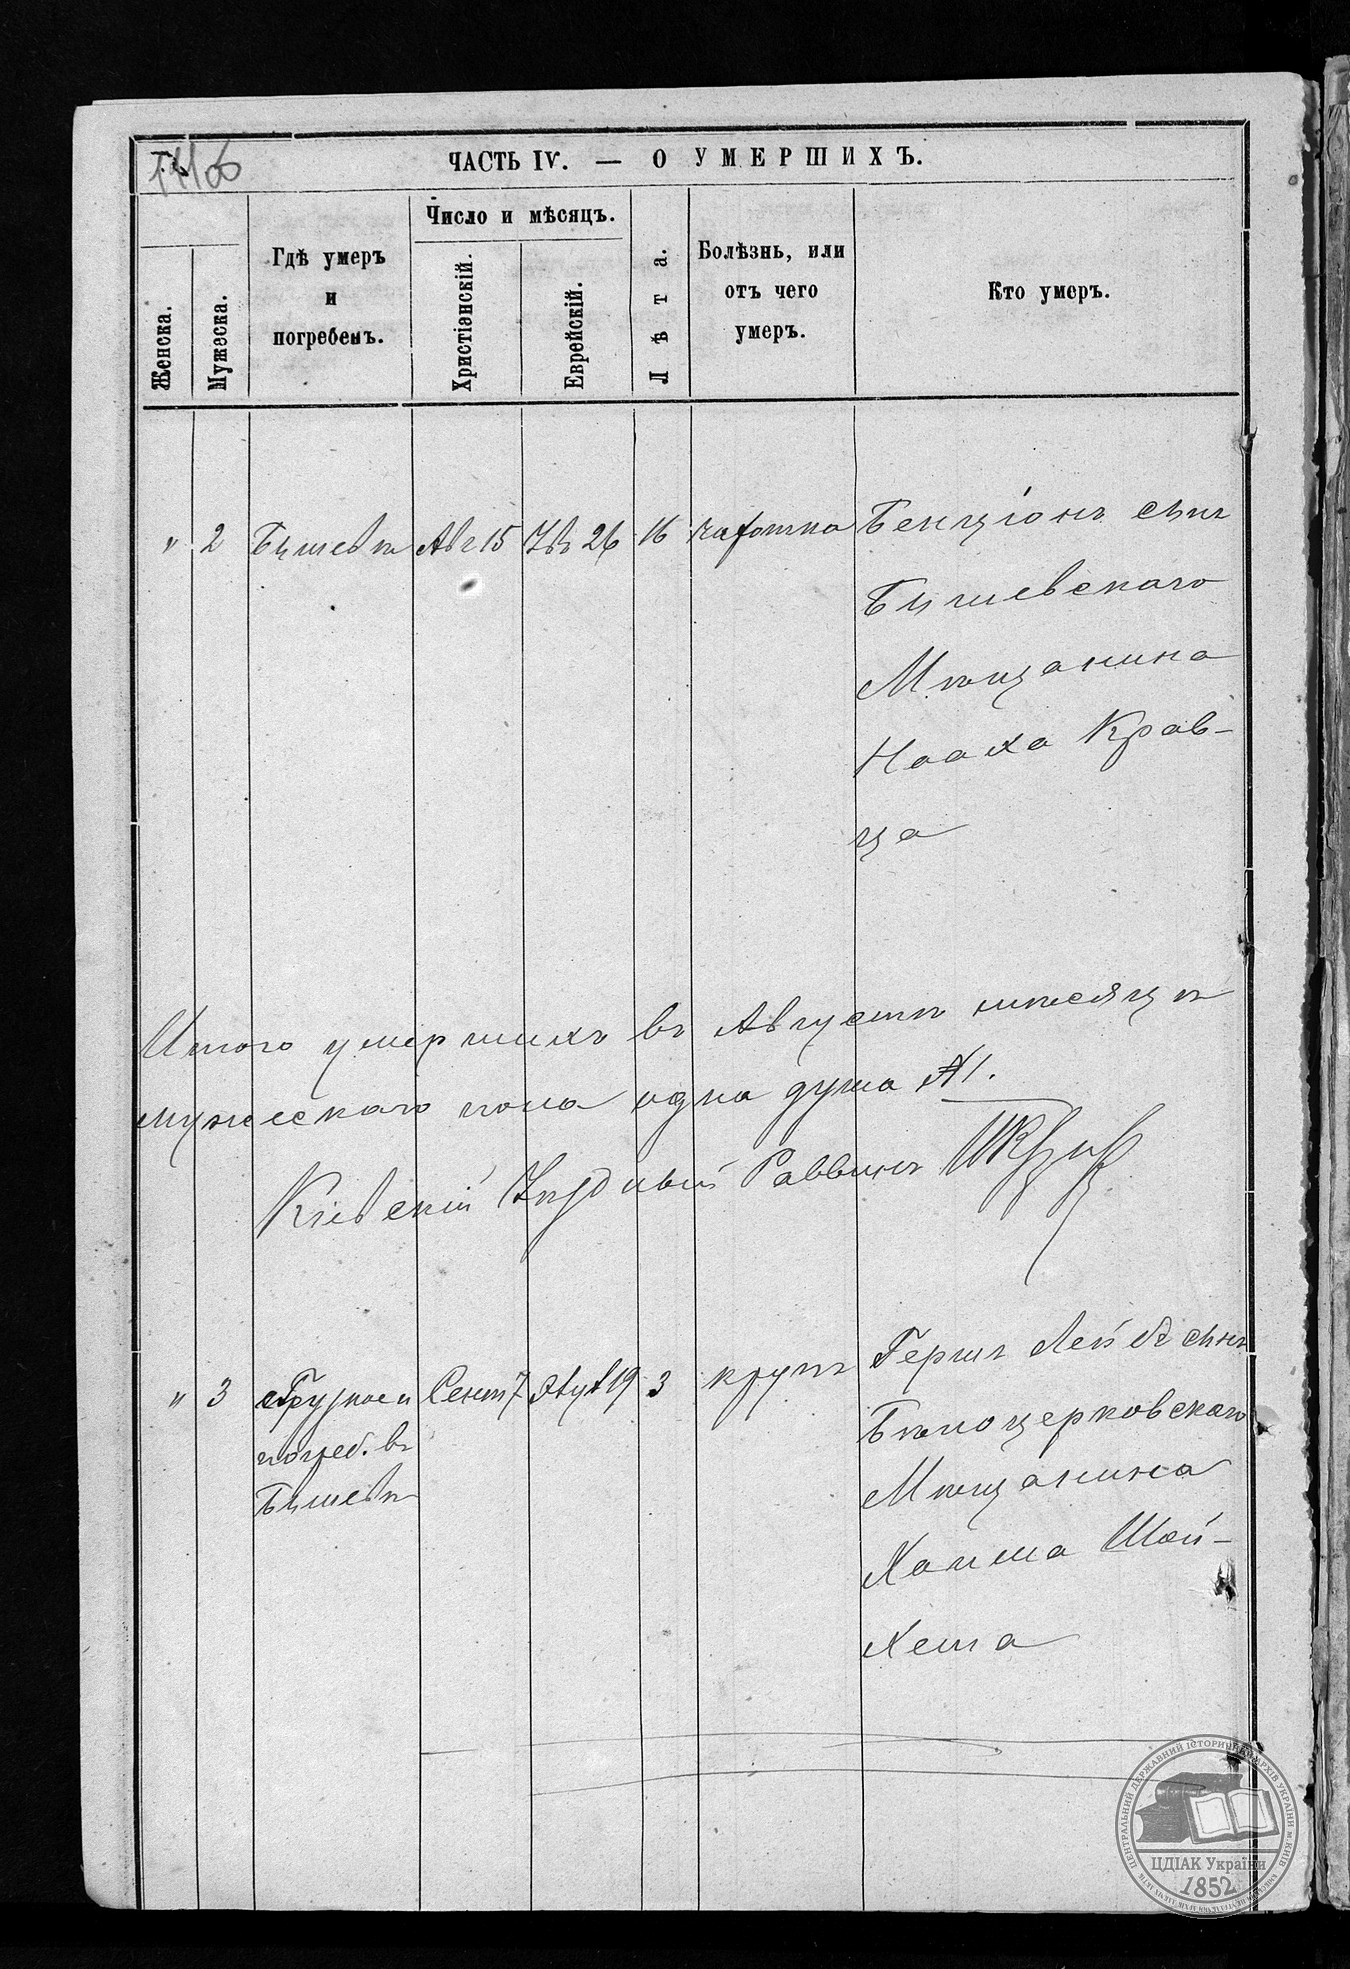 ЧАСТЬ IV. — О УМЕРШИХЪ.
Женска.
Мужеска.
Гдѣ умеръ
и
погребенъ.
Число и мѣсяцъ.
Христіэнскій.
Еврейскій.
Лѣта.
Болѣзнь, или
отъ чего
умеръ.
Кто умеръ.
" 2 Бышевѣ Авг 15 26 16 чахотка Бенціонъ сынъ
Бышевскаго
Мѣщанина
Нааха Крав-
ца
Итого умершихъ въ Августѣ мѣсяцѣ
мужескаго пола одна душа №1.
Кіевскій Уѣздный Раввинъ
" 3 Грузкое и Сент 7 19 3 крупъ Гершъ Лейбъ сынъ
погреб. въ
Бышевѣ
Бѣлоцерковскаго
Мѣщанина
Хаима Шай-
хета
ЦЕНТРАЛЬНИЙ ДЕРЖАВНИЙ ІСТОРИЧНИЙ АРХІВ УКРАЇНИ м. КИЇВ
ЦДІАК України
1852